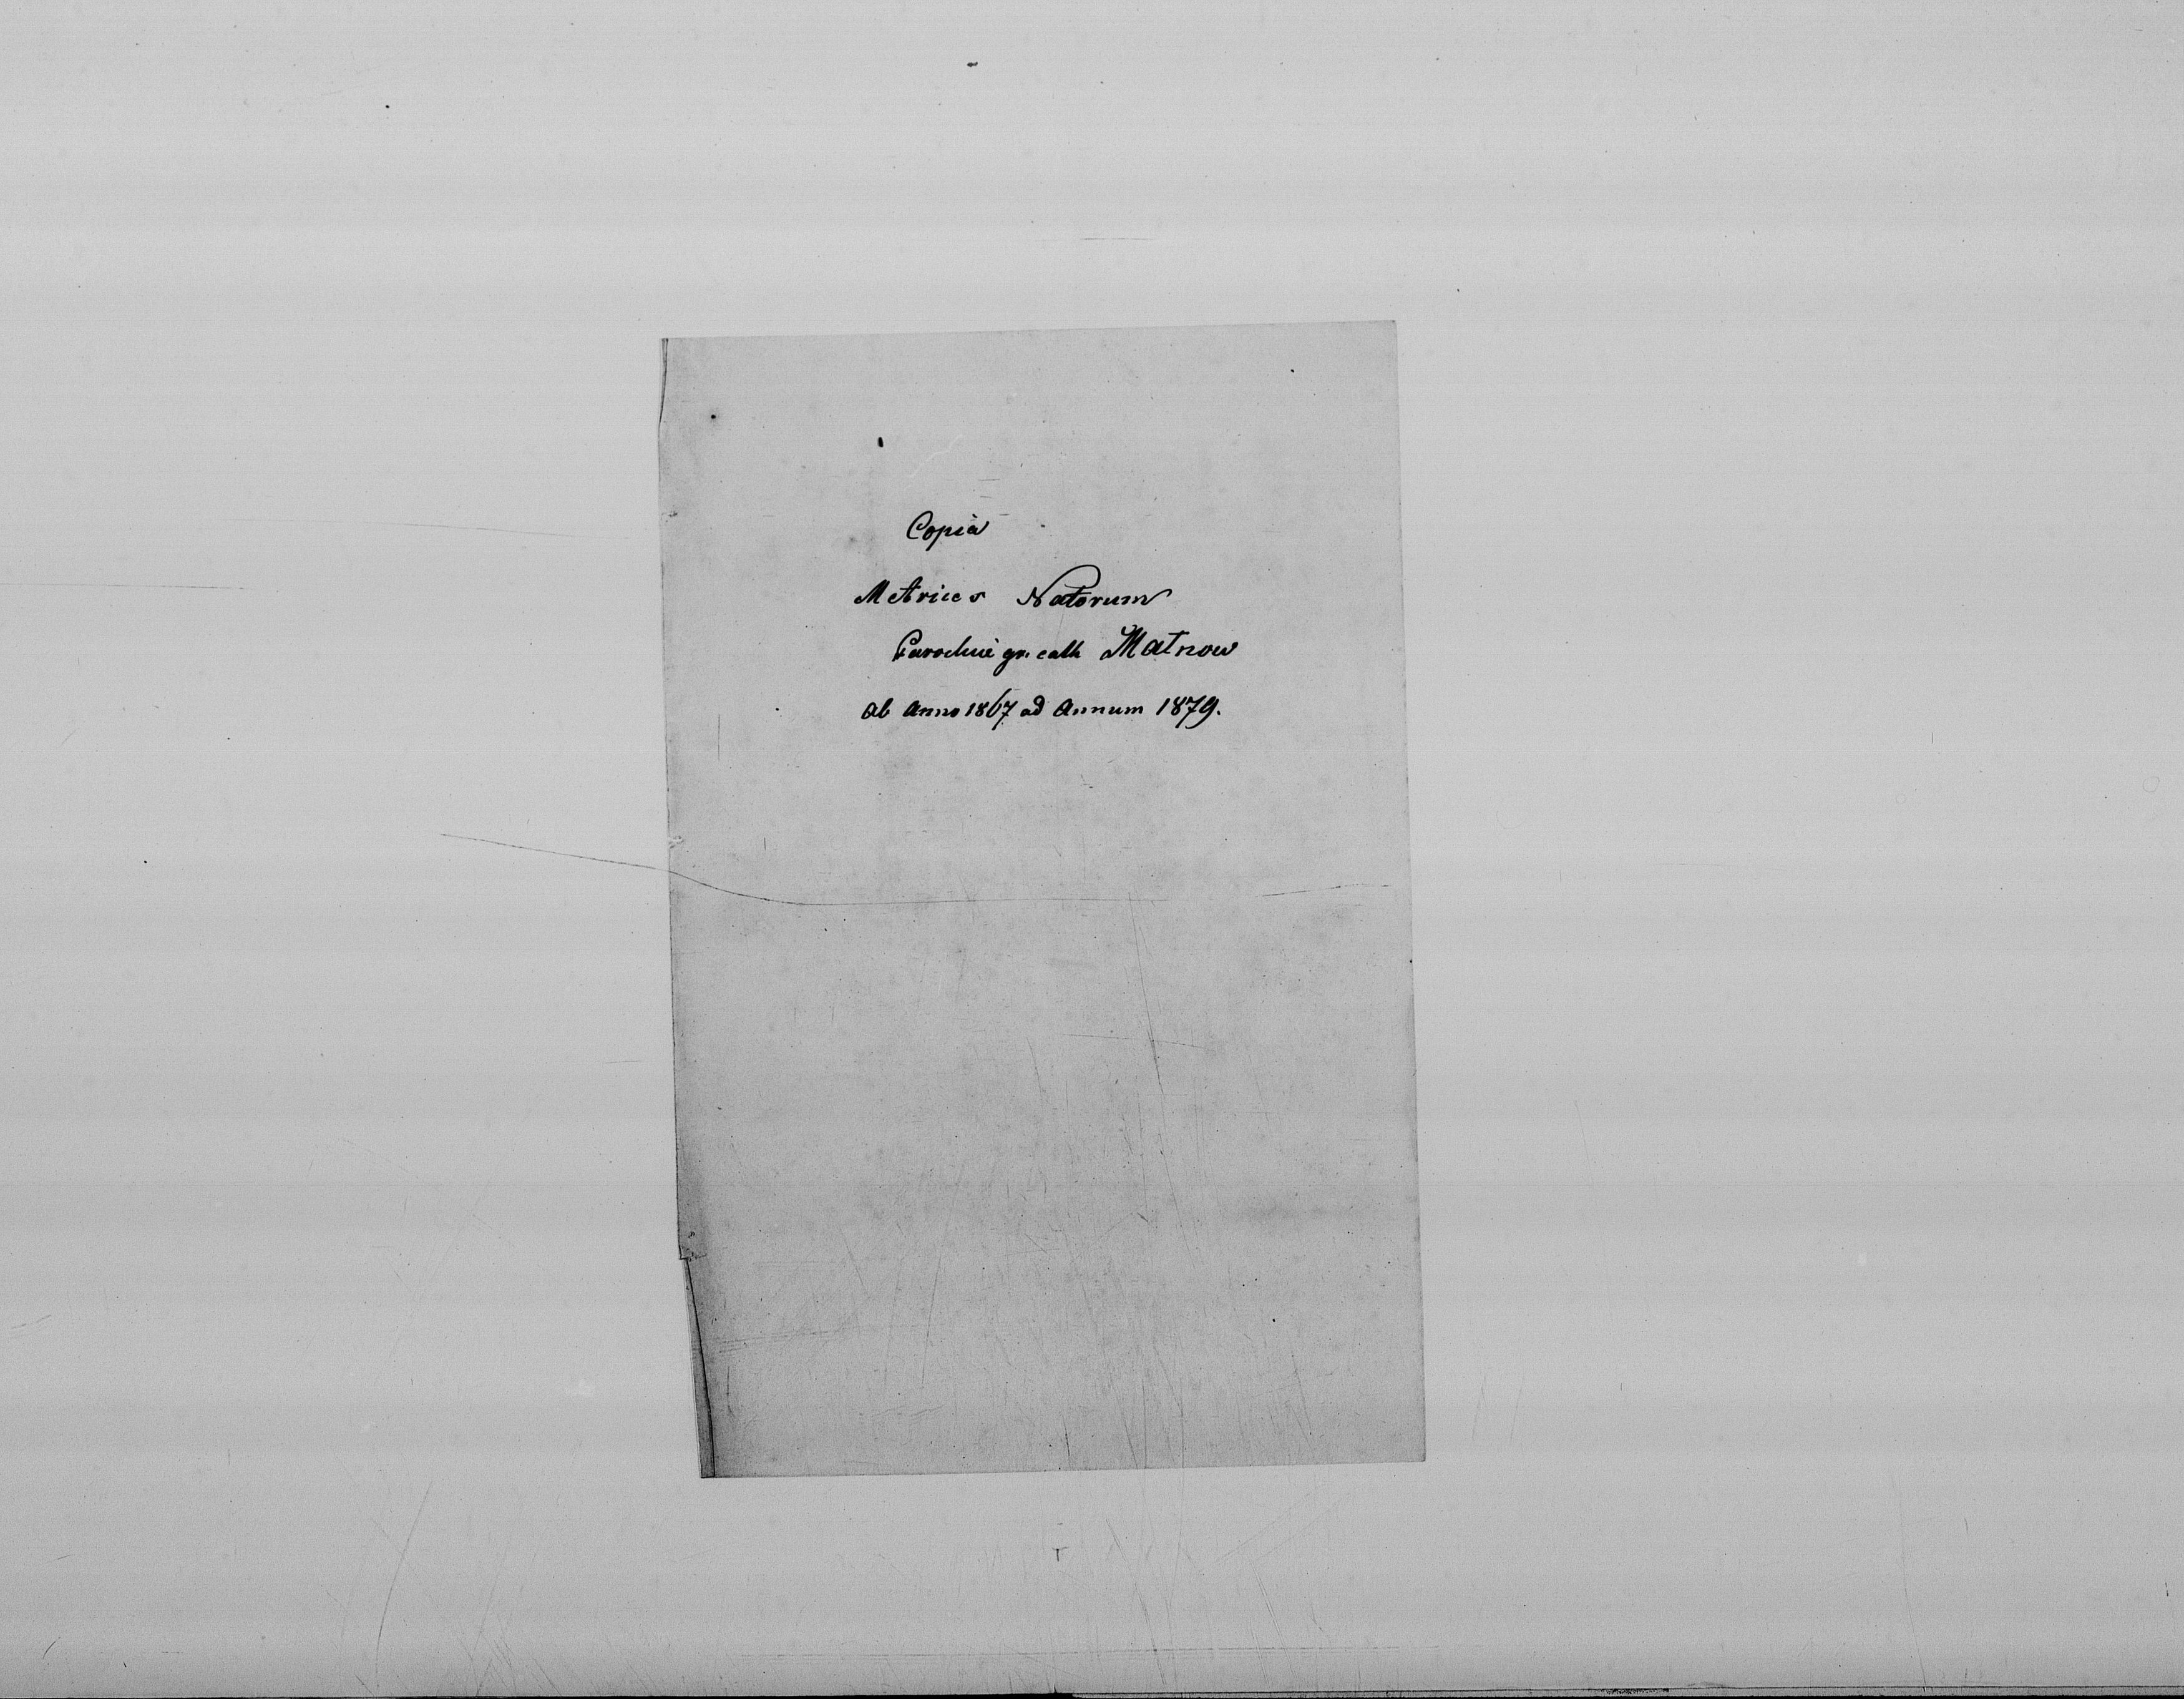 Copia
Metrices Natorum
Parochiè gr. cath Matnow
Ab Anno 1867 ad Annum 1879.